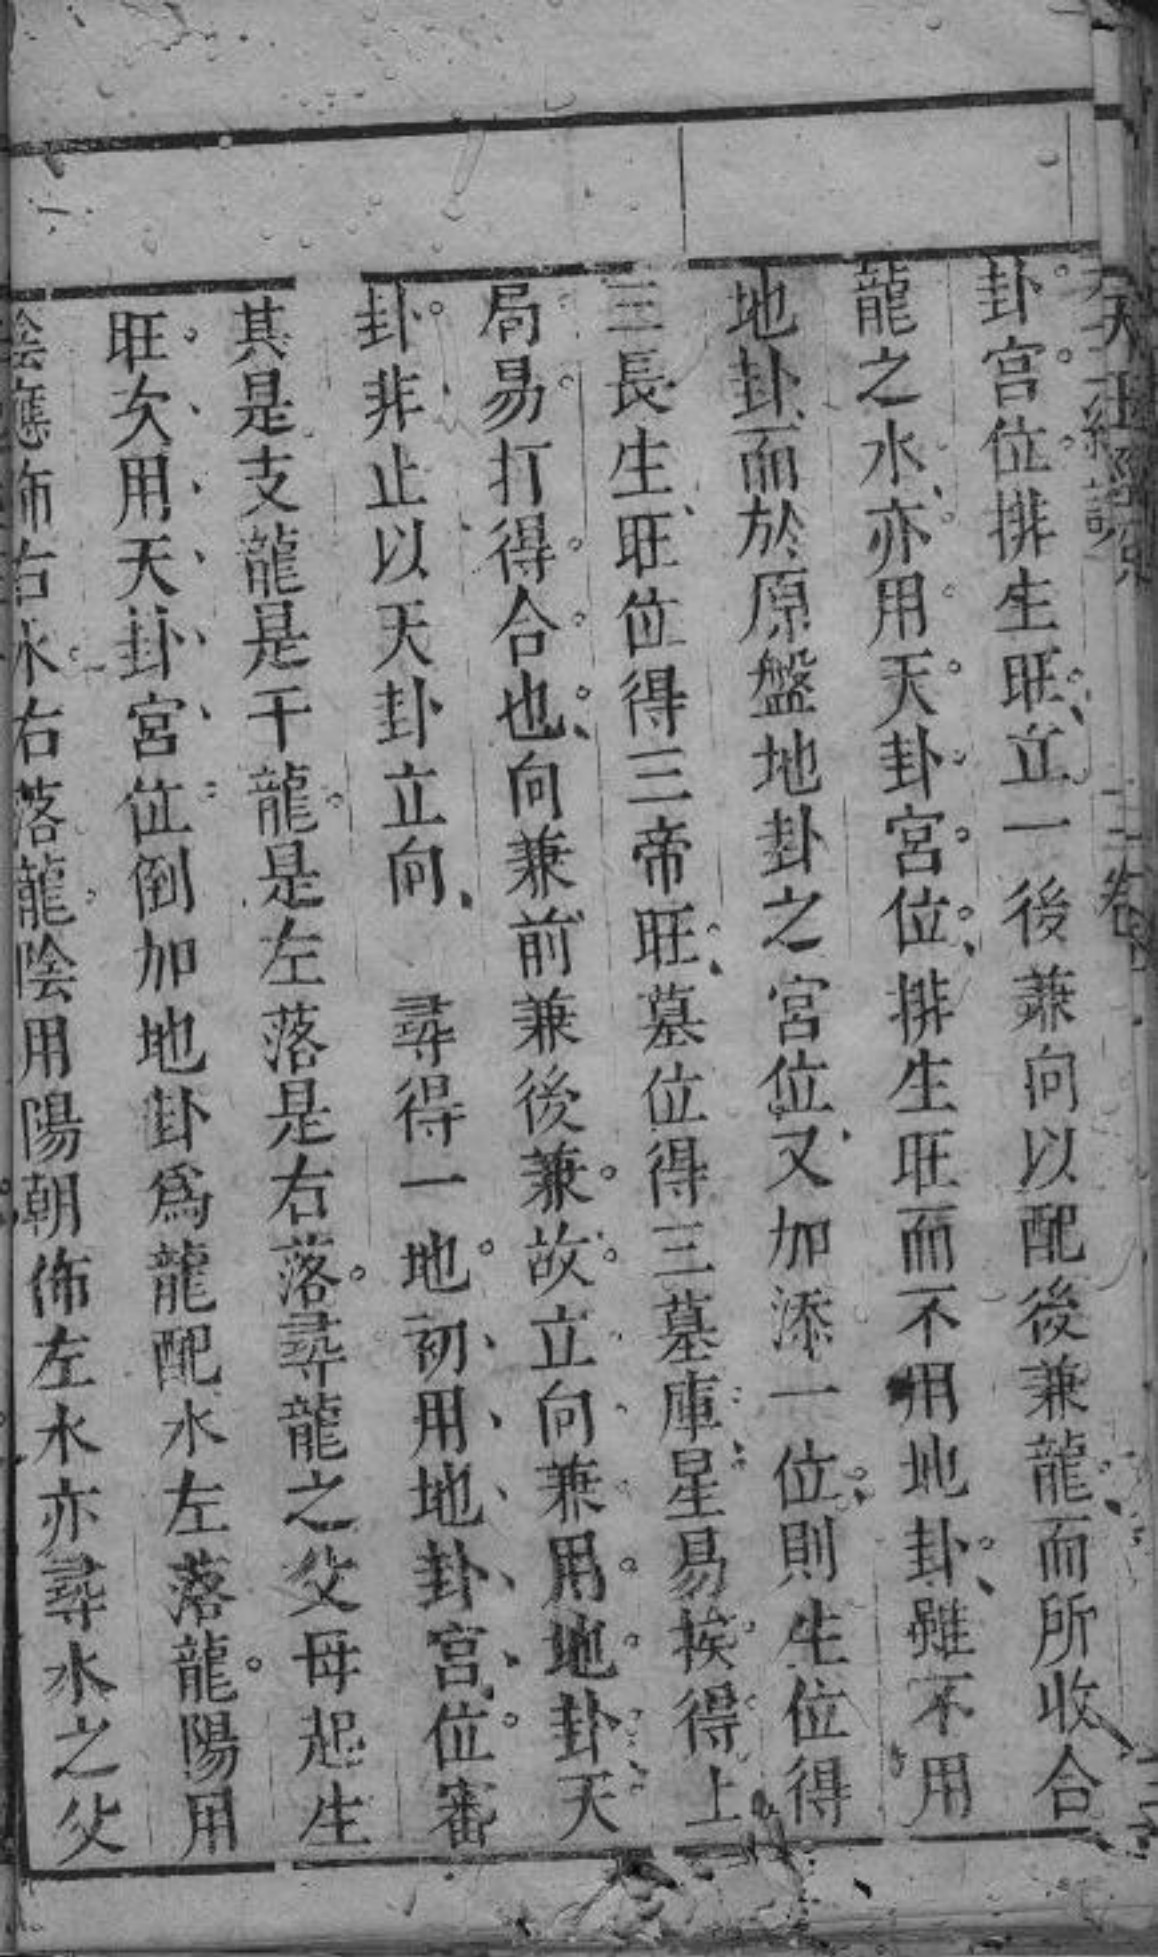 卦宮位排生旺立一後兼向以配後兼龍而所收合
龍之水亦用天卦宮位排生旺而不用地卦雖不用
地卦而於原盤地卦之宮位又加添一位則生位得
三長生旺位得三帝旺墓位得三墓庫星易挨得上
局易打得合也向兼前兼後兼故立向兼用地卦天
卦非止以天卦立向 尋得一地初用地卦宮位審
其是支龍是干龍是左落是右落尋龍之父母起生
旺次用天卦宮位倒加地卦爲龍配水左落龍陽用
陰應佈右水右落龍陰用陽朝佈左水亦尋水之父